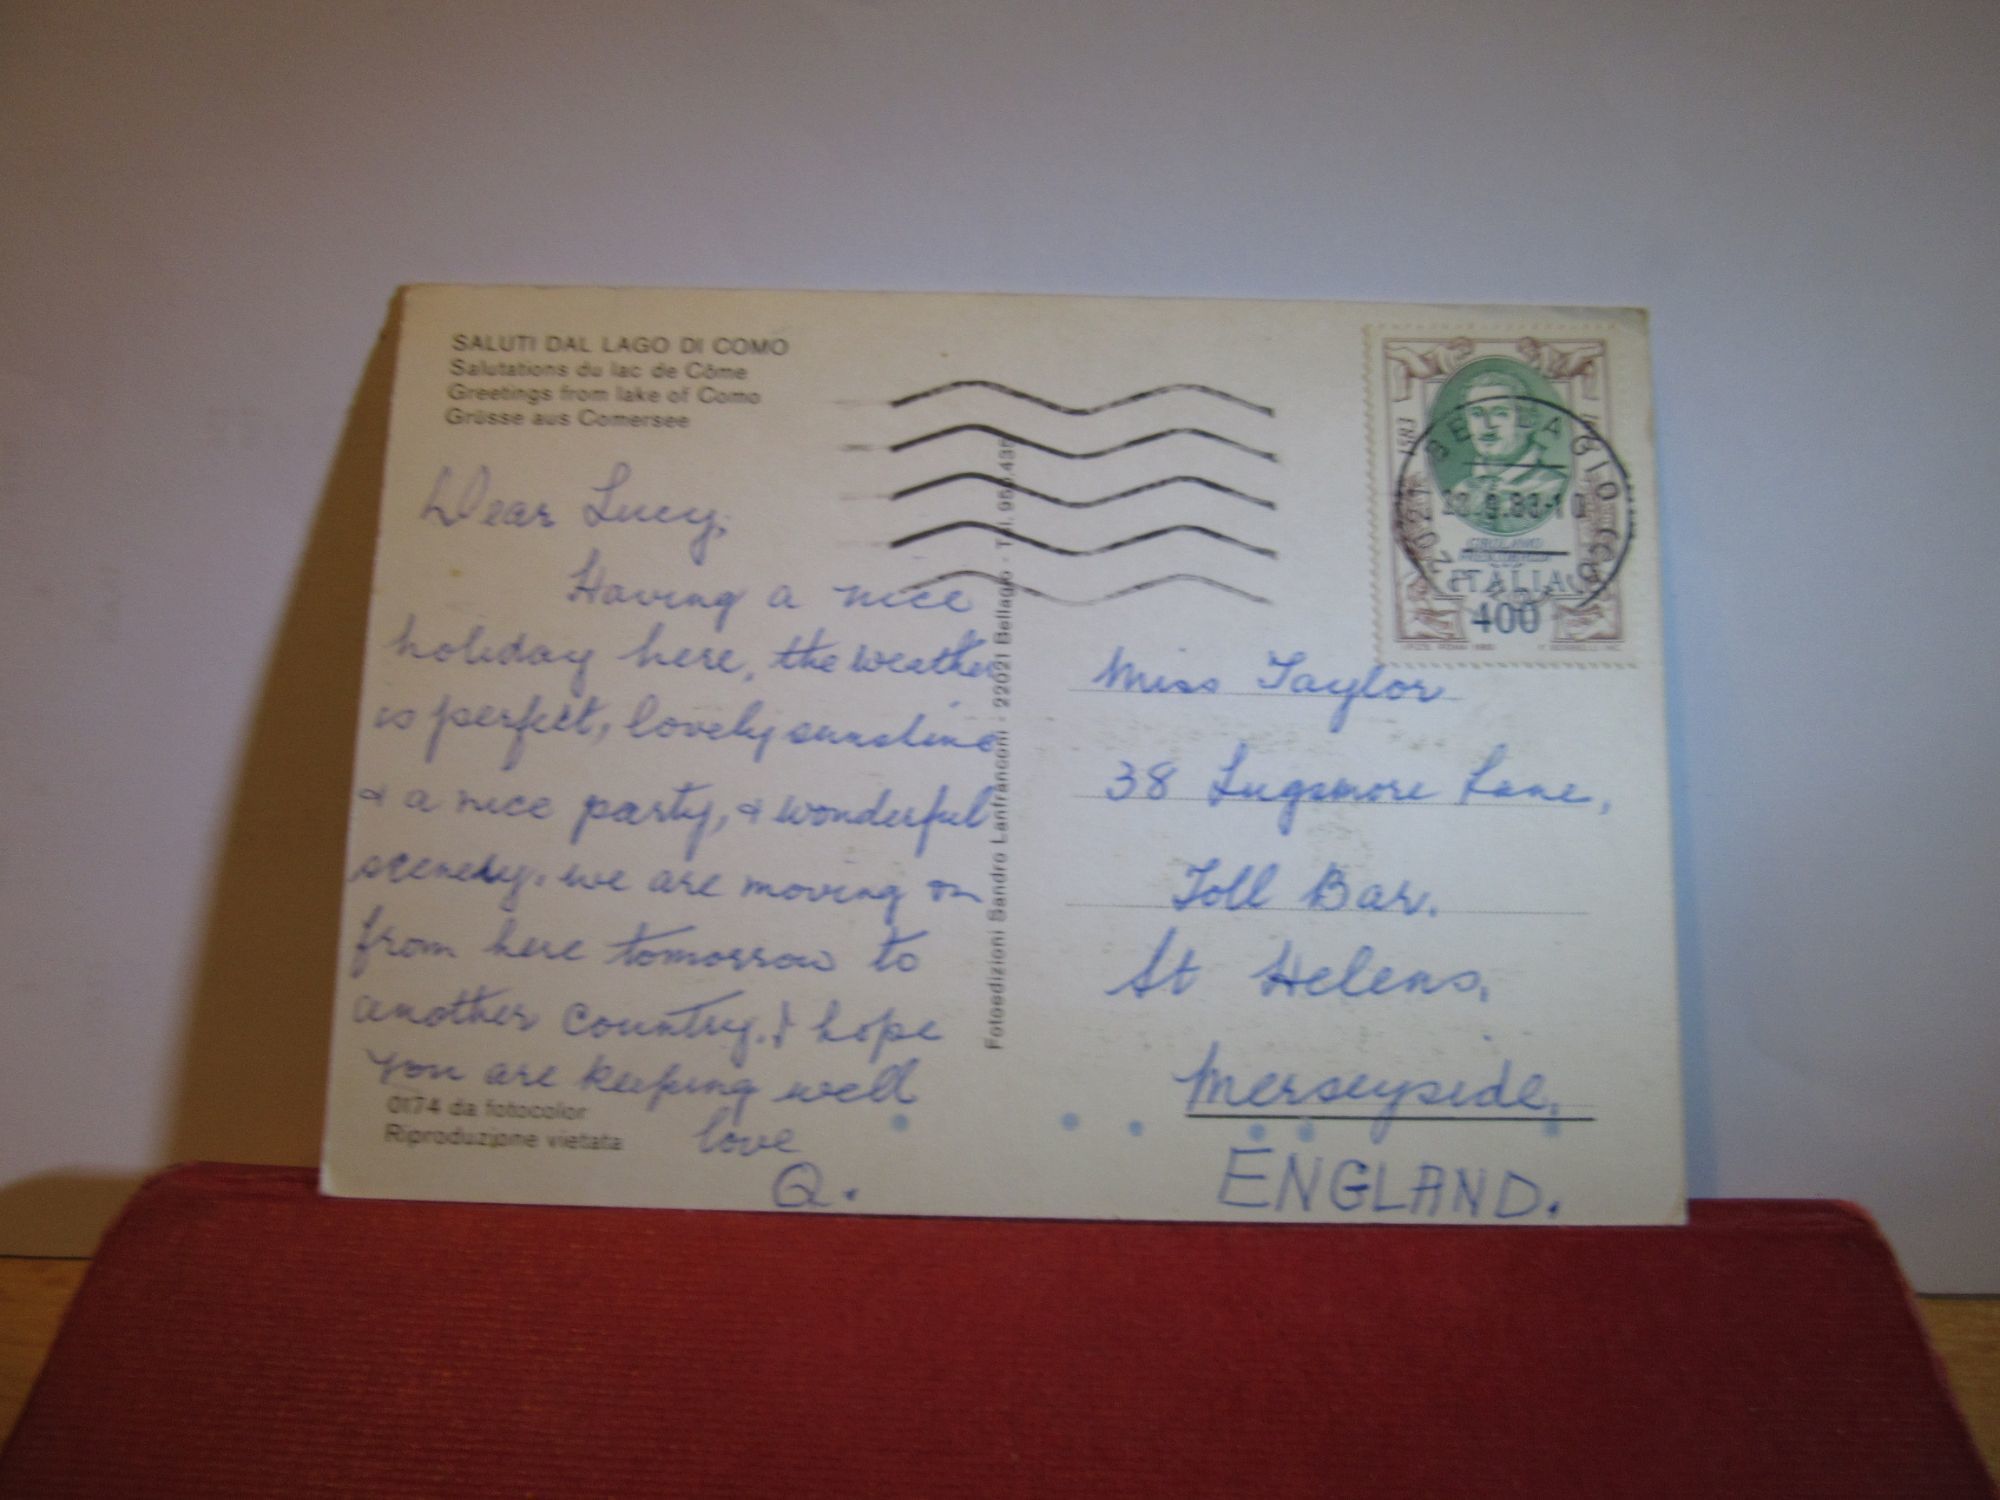 SALUTI DAL LAGO DI COMO
Salutations du lac de Côme
Greetings from lake of Como
Grüsse aus Comersee
Dear Lucy,
Having a nice
holiday here, the weather
is perfect, lovely sunshine
& a nice party, & wonderful
scenery. we are moving on
from here tomorrow to
another country. I hope
you are keeping well
love
Q.
0174 da fotocolor
Riproduzione vietata
Fotoedizioni Sandro Lanfranconi - 22021 Bellagio - Tel. 950.437
1583
BELLAGIO (CO)
22021
ITALIA
400
Miss Taylor
38 Lugsmore Lane,
Toll Bar.
St Helens,
Merseyside,
ENGLAND.